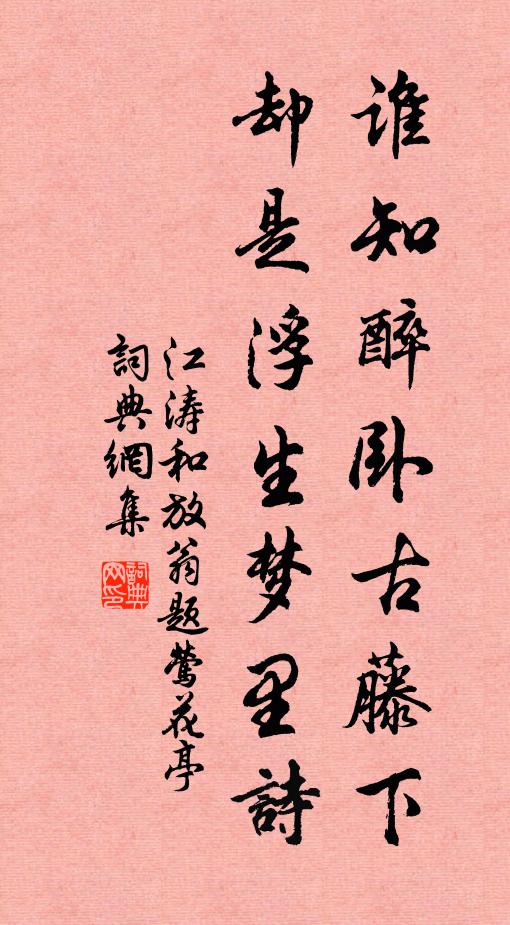 谁知醉卧古藤下
却是浮生梦里詩
江涛和放翁题莺花亭
詞典網集
詞典網印